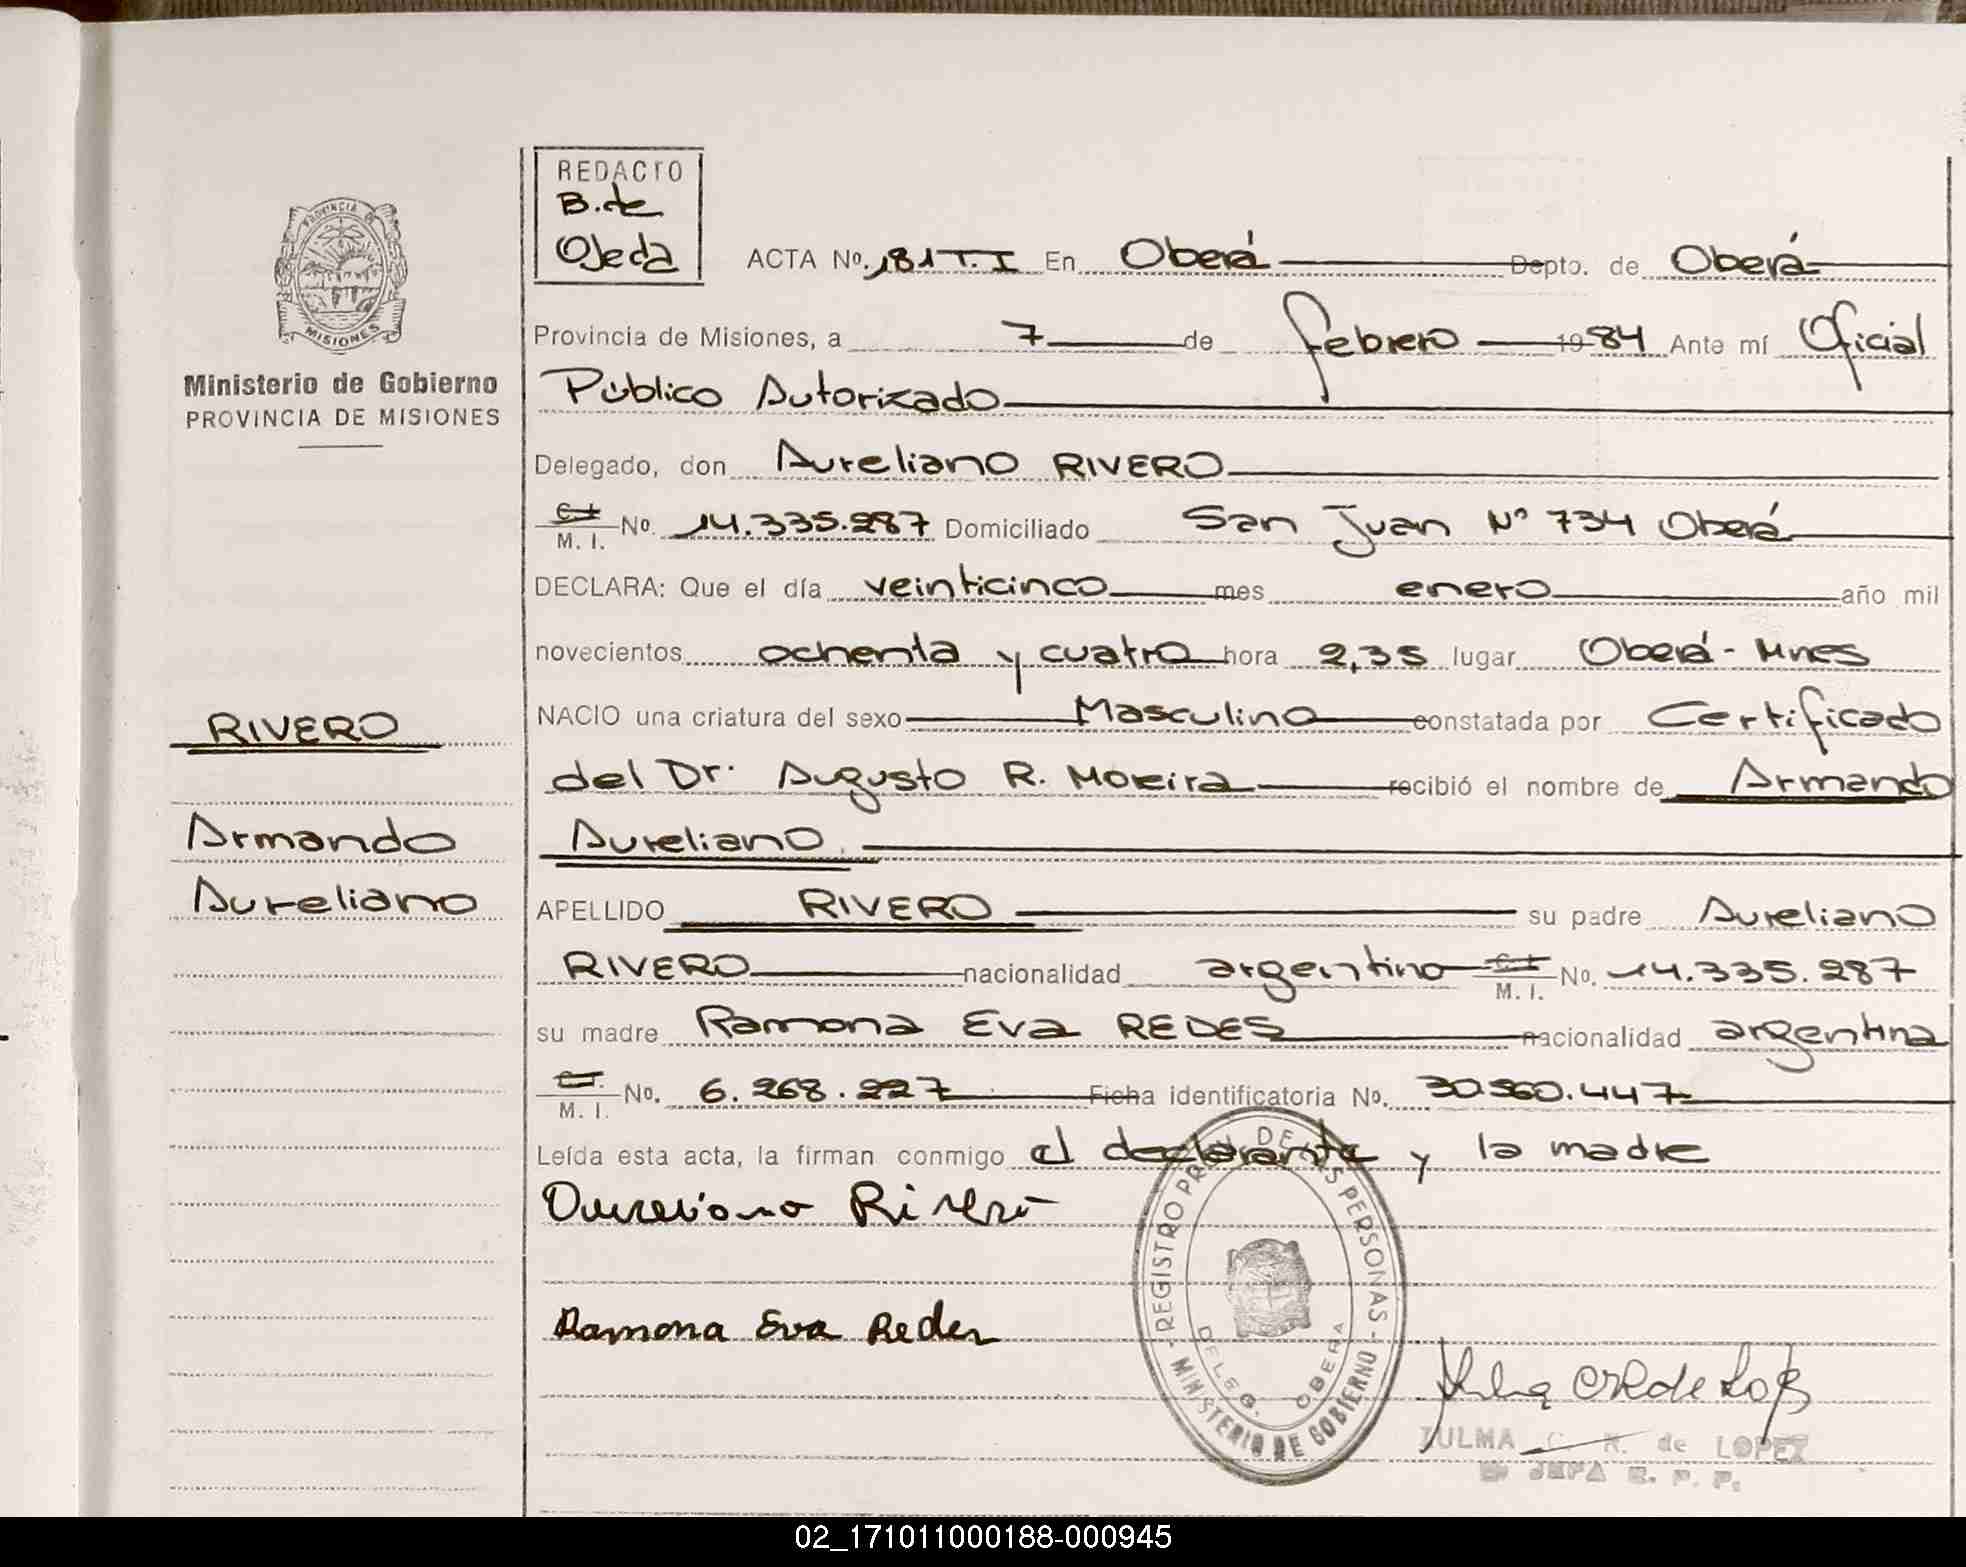 REDACTO
B. de
Ojeda
ACTA Nº. 181 T. I En Oberá Depto. de Oberá
Provincia de Misiones, a 7 de febrero 1984 Ante mí Oficial
Público Autorizado
Delegado, don Aureliano RIVERO
C.I. M. I. Nº. 14.335.287 Domiciliado San Juan Nº 734 Oberá
DECLARA: Que el día veinticinco mes enero año mil
novecientos ochenta y cuatro hora 2,35 lugar Oberá - Mnes
NACIO una criatura del sexo Masculino constatada por Certificado
del Dr. Augusto R. Moreira recibió el nombre de Armando
Aureliano
APELLIDO RIVERO su padre Aureliano
RIVERO nacionalidad argentino C.I. M. I. No. 14.335.287
su madre Ramona Eva REDES nacionalidad argentina
C.I. M. I. No. 6.268.227 Ficha identificatoria Nº. 30.560.447
Leída esta acta, la firman conmigo el declarante y la madre
Aureliano Rivero
Ramona Eva Redes
PROVINCIA DE MISIONES
Ministerio de Gobierno
PROVINCIA DE MISIONES
RIVERO
Armando
Aureliano
REGISTRO PROV. DE LAS PERSONAS - MINISTERIO DE GOBIERNO -
DELEG. OBERA
ZULMA C. R. de LOPEZ
JEFA R. P. P.
02_171011000188-000945